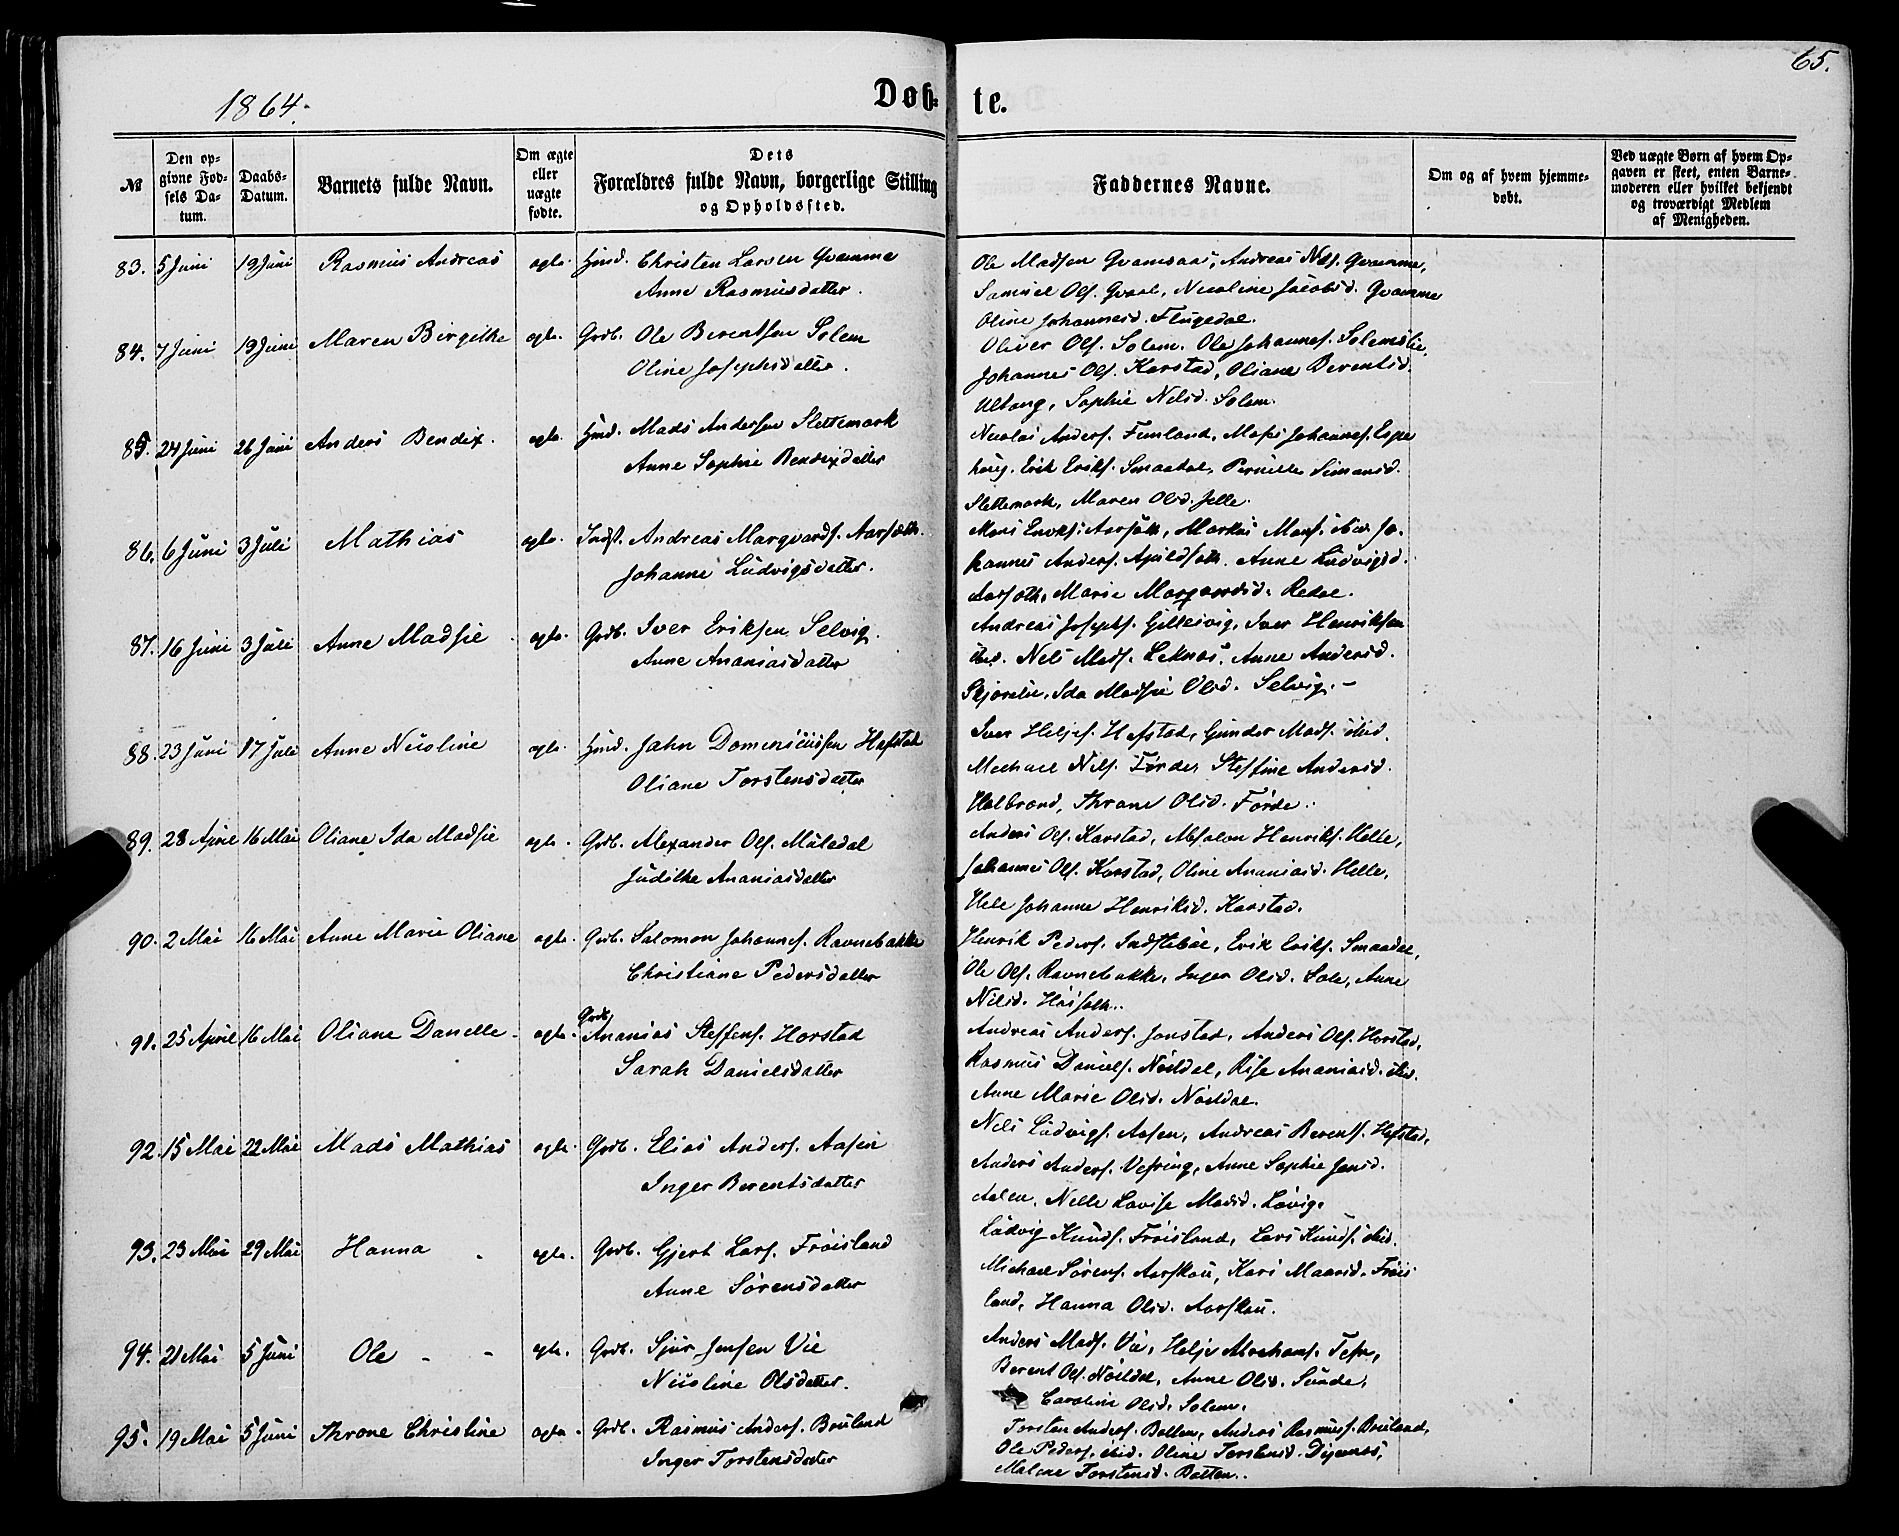 65.
1864.
Døb- te.
№
Den opgivne Fødsels Datum.
Daabs-Datum.
Barnets fulde Navn.
Om ægte eller uægte fødte.
Dets
Forældres fulde Navn, borgerlige Stilling
og Opholdssted.
Faddernes Navne.
Om og af hvem hjemmedøbt.
Ved uægte Børn af hvem Opgaven er skeet, enten Barnemoderen eller hvilket bekjendt og troværdigt Medlem af Menigheden.
83. 5 Juni 19 Juni Rasmus Andreas ægte. Hmd. Christen Larsen Qvamme
Anne Rasmusdatter.
Ole Madsen Qvamsaas, Andreas Nils. Qvamme,
Samuel Ols. Qvaal, Nicoline Jacobsd. Qvamme
Oline Johannesd. Flugedal.
84. 7 Juni 19 Juni Maren Birgithe ægte. Grdb. Ole Berentsen Solem
Oline Josephsdatter.
Oliver Ols. Solem. Ole Johannes. Solemslie,
Johannes Ols. Karstad, Oliane Berentsd.
Ultang, Sophie Nilsd. Solem.
85. 24 Juni 26 Juni Anders Bendix. ægte. Hmd. Mads Andersen Slettemark
Anne Sophie Bendixdatter
Nicolai Anders. Funland, Moses Johannes. Espe
houg. Erik Eriks. Smaadal, Pernille Simonsd.
Slettemark, Maren Olsd. Jelle.
86. 6 Juni 3 Juli Mathias ægte. Indst. Andreas Marqvards. Aarseth.
Johanne Ludvigsdatter.
Johannes Anders. Anne Ludvigsd.
Marie Marqvardsd. Redal.
87. 16 Juni 3 Juli Anne Madsie ægte. Grdb. Iver Eriksen Selvig.
Anne Ananiasdatter
Andreas Josephs. Gillesvig, Iver Henriksen
ibid. Nils Mads. Leknæs, Anne Andersd.
Ida Madsie Olsd. Selvig. -
88. 23 Juni 17 Juli Anne Nicoline ægte. Hmd. John Dominicussen Hafstad
Oliane Torstensdatter
Iver Heljes. Hafstad, Gunder Mads. ibid.
Michael Nils. Førde, Steffine Andersd.
Halbrand, Throne Olsd. Førde.
89. 28 April 16 Mai Oliane Ida Madsie ægte. Grdb. Alexander Ols. Mäledal
Judithe Ananiasdatter
Anders Ols. Karstad, Absalon Henriks. Helle,
Johannes Ols. Karstad, Oline Ananiasd. Helle,
Johanne Henriksd. Karstad.
90. 2 Mai 16 Mai Anne Marie Oliane ægte. Grdb. Salomon Johannes. Ravnebakke
Christiane Pedersdatter
Henrik Peders. Indstebøe, Erik Eriks. Smaadal,
Ole Ols. Ravnebakke, Inger Olsd. Sole, Anne
Nilsd.
91. 25 April 16 Mai Oliane Danielle ægte. Grdb. Ananias Steffens. Horstad
Sarah Danielsdatter
Andreas Anders. Jonstad, Anders Ols. Horstad,
Rasmus Daniels. Nøsdal, Rise Ananiasd. ibid.
Anne Marie Olsd. Nøsdal.
92. 15 Mai 22 Mai Mads Mathias ægte. Grdb. Elias Anders. Aasen
Inger Berentsdatter
Nils Ludvigs. Aasen, Andreas Berents. Hafstad,
Anders Anders. Vefring, Anne Sophie Jensd.
Aasen, Nille Lovise Madsd. Løvig.
93. 23 Mai 29 Mai Hanna ægte. Grdb. Gjert Lars. Frøisland
Anne Sørensdatter
Ludvig Knuds. Frøisland, Lars Knuds. ibid.
Michael Sørens. Aarskou, Kari Madsd. Frøis
land, Hanna Olsd. Aarskou.
94. 21 Mai 5 Juni Ole - - ægte. Grdb. Sjur Jensen Vie
Nicoline Olsdatter.
Anders Mads. Vie, Helje Tefre,
Berent Ols. Nøsdal, Anne Olsd. Sunde,
Caroline Olsd. Solem.
95. 19 Mai 5 Juni Throne Christine ægte. Grdb. Rasmus Anders. Bruland
Inger Torstensdatter
Torsten Anders. Botten, Anders Rasmus. Bruland,
Ole Peders. ibid. Oline Torstensd. Digernæs,
Malene Torstensd. Botten.